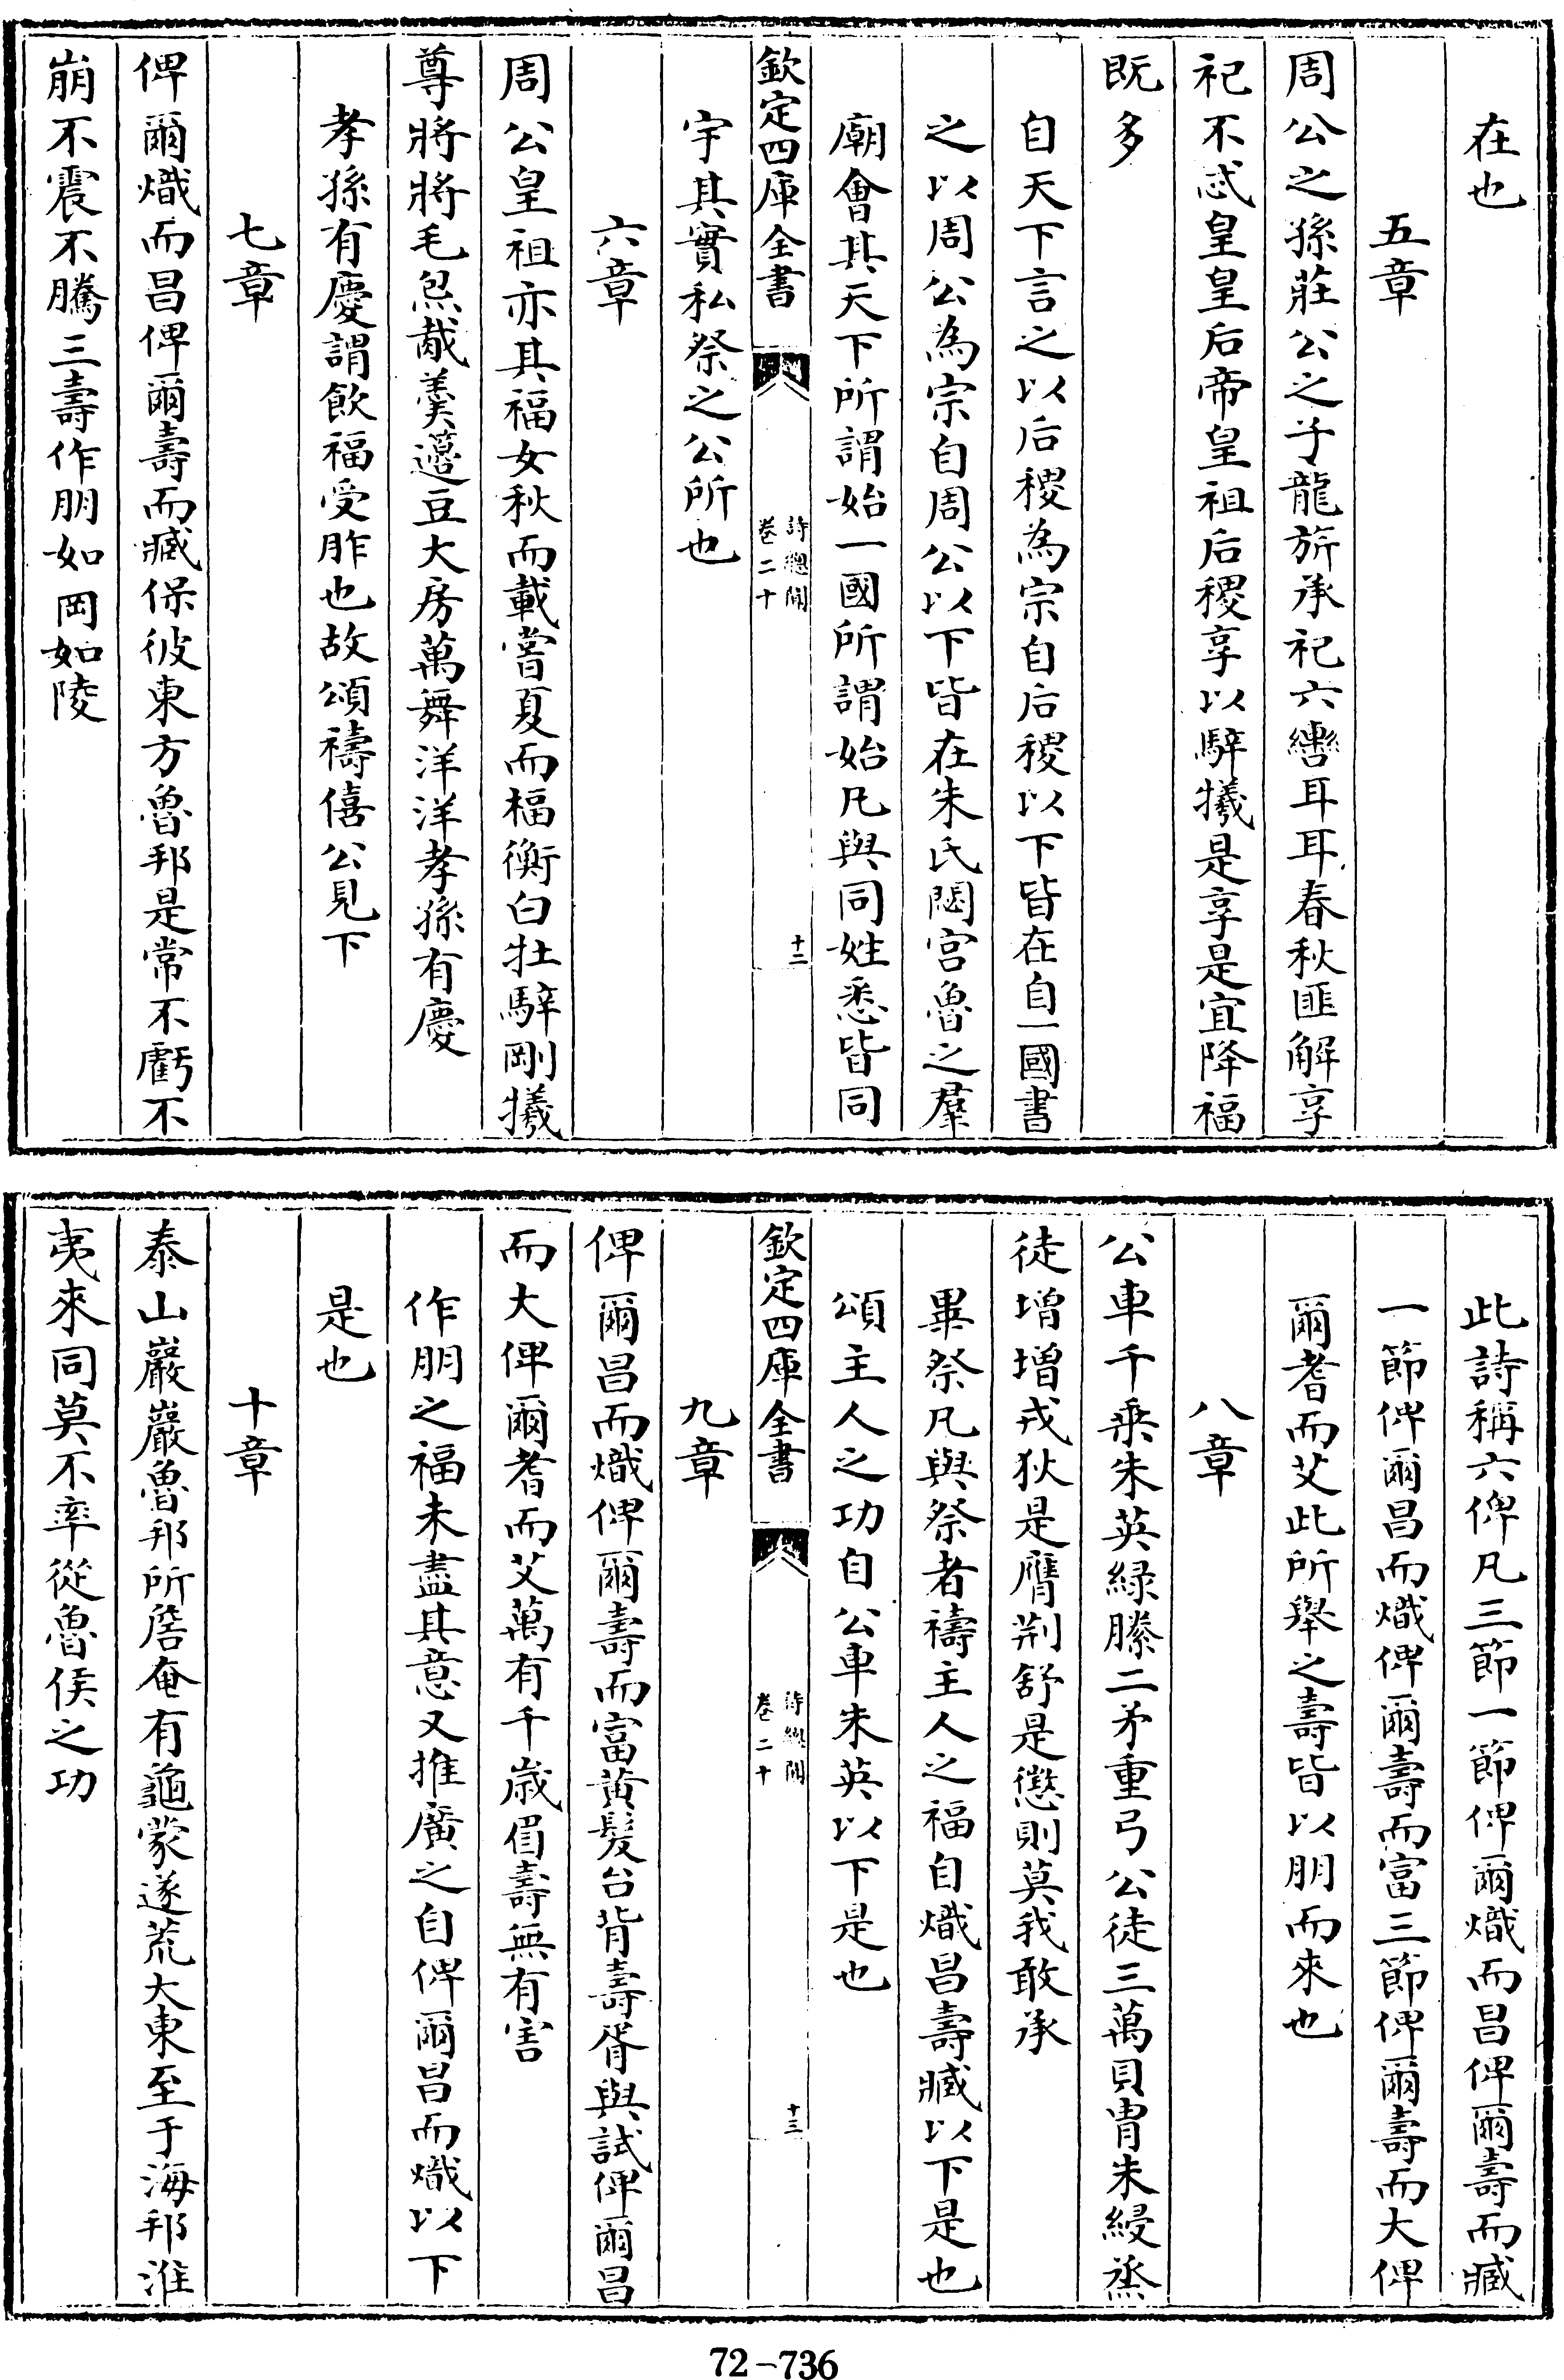 在也
五章
周公之孫莊公之子龍旂承祀六轡耳耳春秋匪解享
祀不忒皇皇后帝皇祖后稷享以騂犧是享是宜降福
既多
自天下言之以后稷為宗自后稷以下皆在自一國書
之以周公為宗自周公以下皆在朱氏閟宫魯之羣
廟會其天下所謂始一國所謂始凡與同姓悉皆同
欽定四庫全書
詩總聞
卷二十
十二
宇其實私祭之公所也
六章
周公皇祖亦其福女秋而載嘗夏而楅衡白牡騂剛犧
尊將將毛炰胾羮籩豆大房萬舞洋洋孝孫有慶
孝孫有慶謂飲福受胙也故頌禱僖公見下
七章
俾爾熾而昌俾爾壽而臧保彼東方魯邦是常不虧不
崩不震不騰三壽作朋如岡如陵
此詩稱六俾凡三節一節俾爾熾而昌俾爾壽而臧
一節俾爾昌而熾俾爾壽而富三節俾爾壽而大俾
爾耆而艾此所舉之壽皆以朋而來也
八章
公車千乗朱英緑縢二矛重弓公徒三萬貝胄朱綅烝
徒增增戎狄是膺荆舒是懲則莫我敢承
畢祭凡與祭者禱主人之福自熾昌壽臧以下是也
頌主人之功自公車朱英以下是也
欽定四庫全書
詩總聞
卷二十
十三
九章
俾爾昌而熾俾爾壽而富黄髮台背壽胥與試俾爾昌
而大俾爾耆而艾萬有千歳眉壽無有害
作朋之福未盡其意又推廣之自俾爾昌而熾以下
是也
十章
泰山巖巖魯邦所詹奄有龜蒙遂荒大東至于海邦淮
夷來同莫不率從魯侯之功
72-736